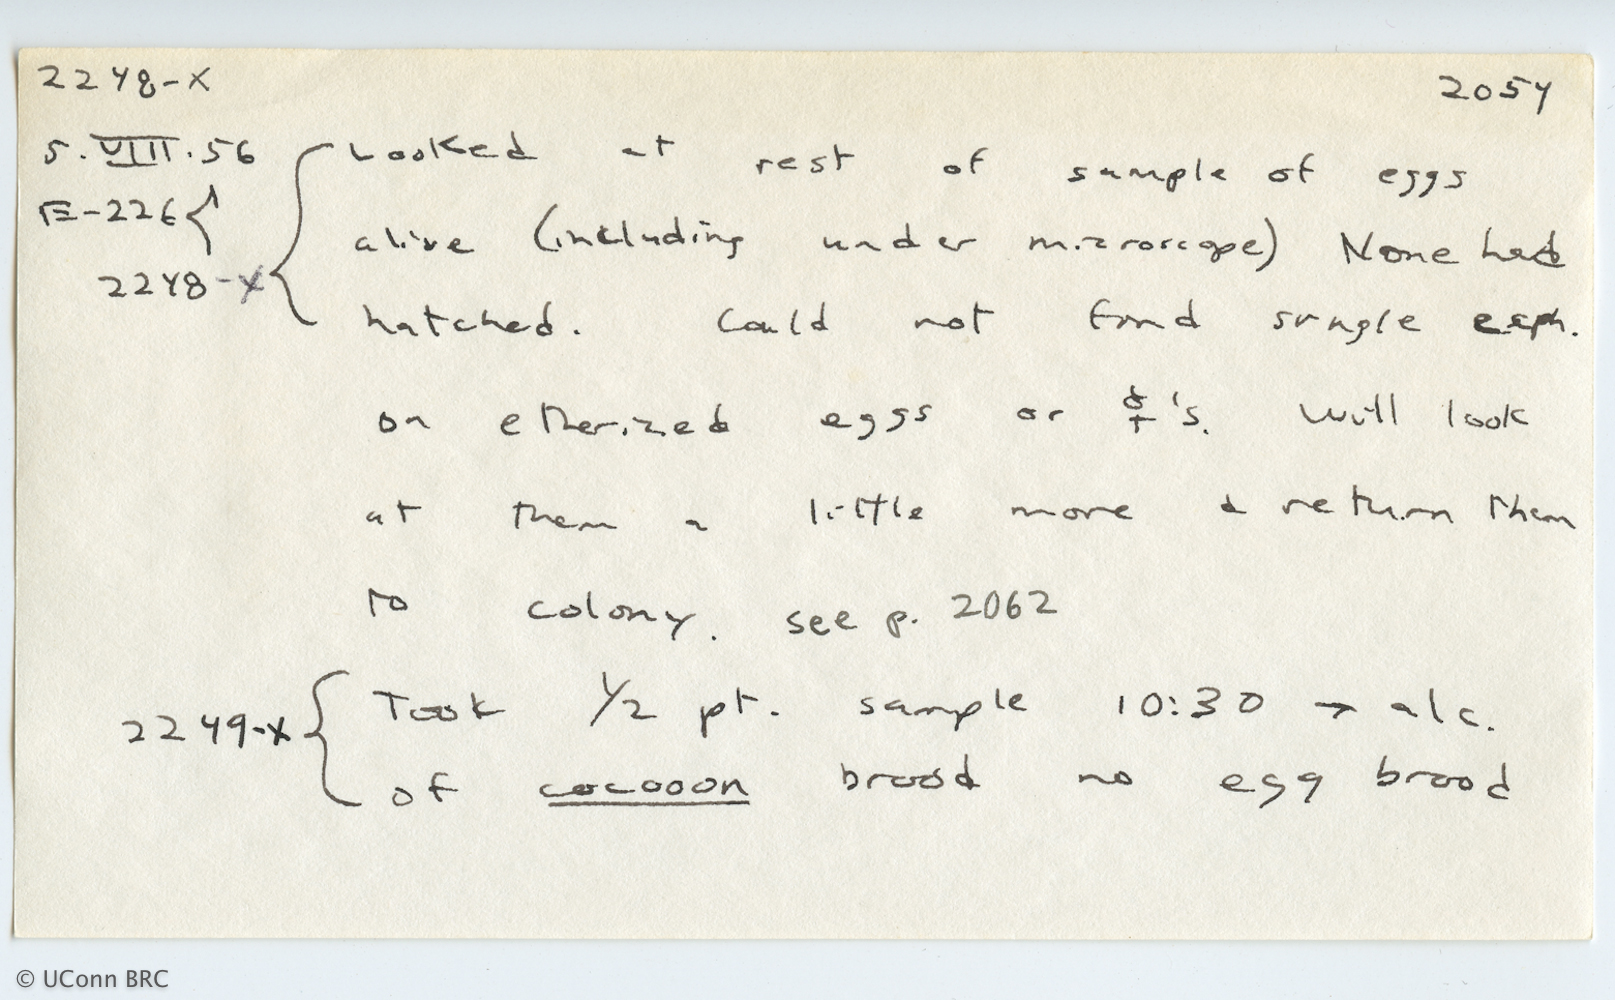 2248-X 2054
5.VIII.56 Looked at rest of sample of eggs
E-226 alive (including under microscope) None had
2248-X hatched. Could not find single eeph.
on etherized eggs or ☿'s. Will look
at them a little more & return them
to colony. see p. 2062
2249-X Took 1/2 pt. sample 10:30 → alc.
of cocooon brood no egg brood
© UConn BRC